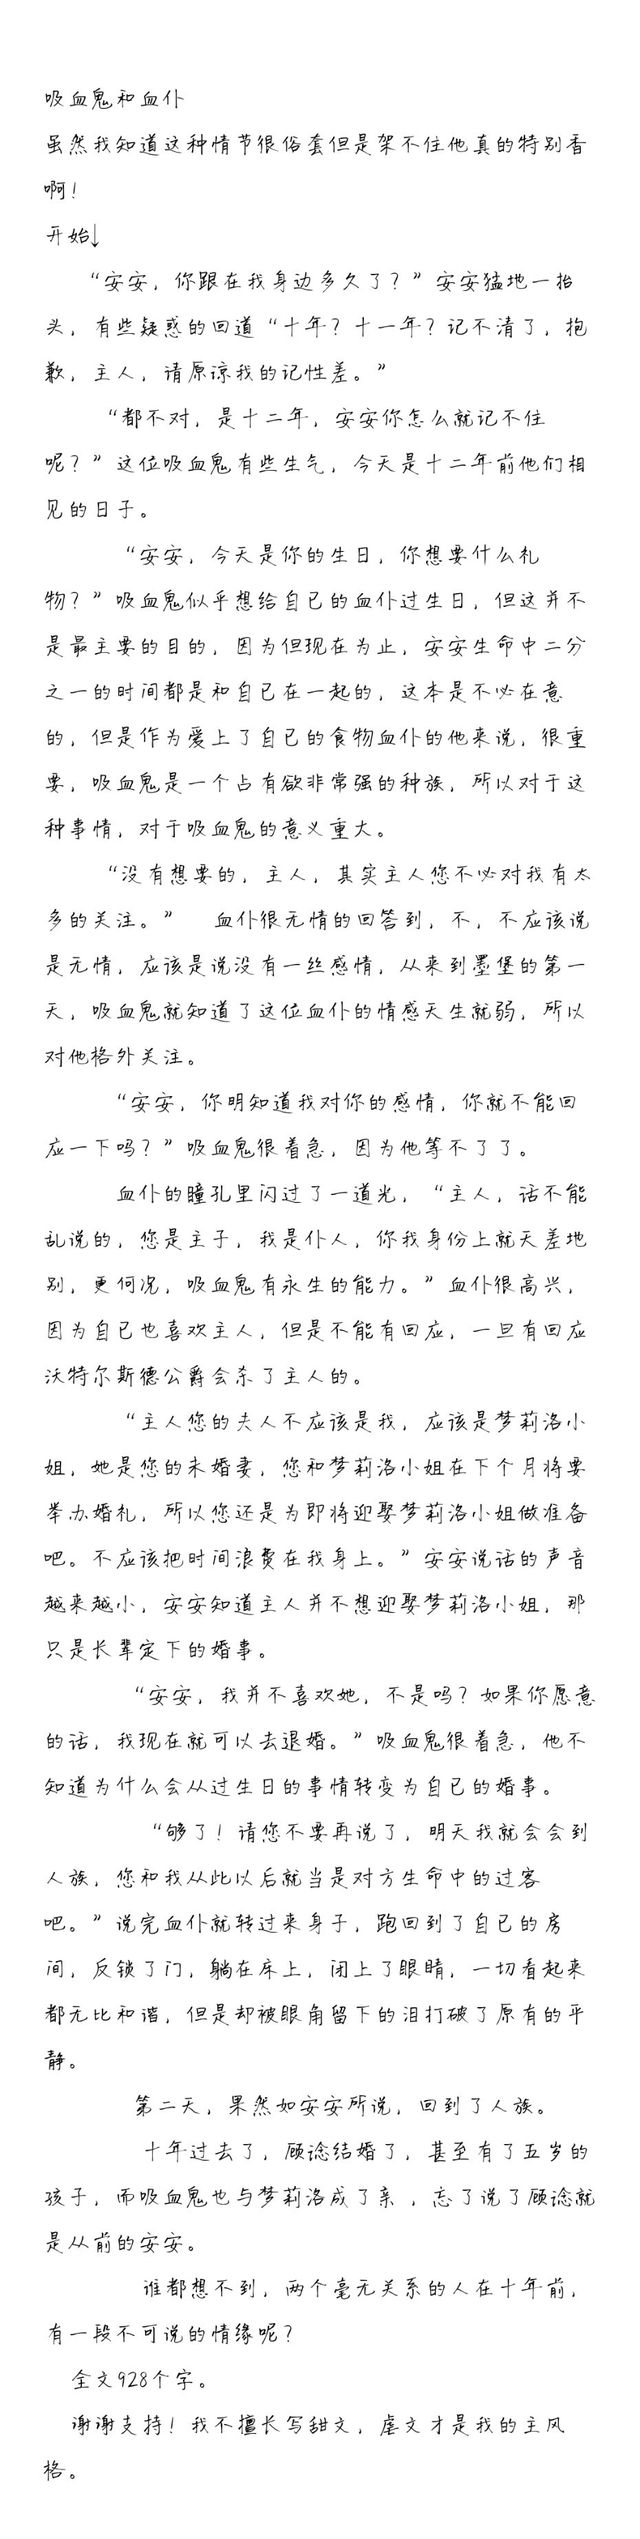 吸血鬼和血仆
虽然我知道这种情节很俗套但是架不住他真的特别香
啊！
开始↓
“安安，你跟在我身边多久了？”安安猛地一抬
头，有些疑惑的回道“十年？十一年？记不清了，抱
歉，主人，请原谅我的记性差。”
“都不对，是十二年，安安你怎么就记不住
呢？”这位吸血鬼有些生气，今天是十二年前他们相
见的日子。
“安安，今天是你的生日，你想要什么礼
物？”吸血鬼似乎想给自己的血仆过生日，但这并不
是最主要的目的，因为但现在为止，安安生命中二分
之一的时间都是和自己在一起的，这本是不必在意
的，但是作为爱上了自己的食物血仆的他来说，很重
要，吸血鬼是一个占有欲非常强的种族，所以对于这
种事情，对于吸血鬼的意义重大。
“没有想要的，主人，其实主人您不必对我有太
多的关注。” 血仆很无情的回答到，不，不应该说
是无情，应该是说没有一丝感情，从来到墨堡的第一
天，吸血鬼就知道了这位血仆的情感天生就弱，所以
对他格外关注。
“安安，你明知道我对你的感情，你就不能回
应一下吗？”吸血鬼很着急，因为他等不了了。
血仆的瞳孔里闪过了一道光，“主人，话不能
乱说的，您是主子，我是仆人，你我身份上就天差地
别，更何况，吸血鬼有永生的能力。”血仆很高兴，
因为自己也喜欢主人，但是不能有回应，一旦有回应
沃特尔斯德公爵会杀了主人的。
“主人您的夫人不应该是我，应该是梦莉洛小
姐，她是您的未婚妻，您和梦莉洛小姐在下个月将要
举办婚礼，所以您还是为即将迎娶梦莉洛小姐做准备
吧。不应该把时间浪费在我身上。”安安说话的声音
越来越小，安安知道主人并不想迎娶梦莉洛小姐，那
只是长辈定下的婚事。
“安安，我并不喜欢她，不是吗？如果你愿意
的话，我现在就可以去退婚。”吸血鬼很着急，他不
知道为什么会从过生日的事情转变为自己的婚事。
“够了！请您不要再说了，明天我就会会到
人族，您和我从此以后就当是对方生命中的过客
吧。”说完血仆就转过来身子，跑回到了自己的房
间，反锁了门，躺在床上，闭上了眼睛，一切看起来
都无比和谐，但是却被眼角留下的泪打破了原有的平
静。
第二天，果然如安安所说，回到了人族。
十年过去了，顾谂结婚了，甚至有了五岁的
孩子，而吸血鬼也与梦莉洛成了亲 ，忘了说了顾谂就
是从前的安安。
谁都想不到，两个毫无关系的人在十年前，
有一段不可说的情缘呢？
全文928个字。
谢谢支持！我不擅长写甜文，虐文才是我的主风
格。